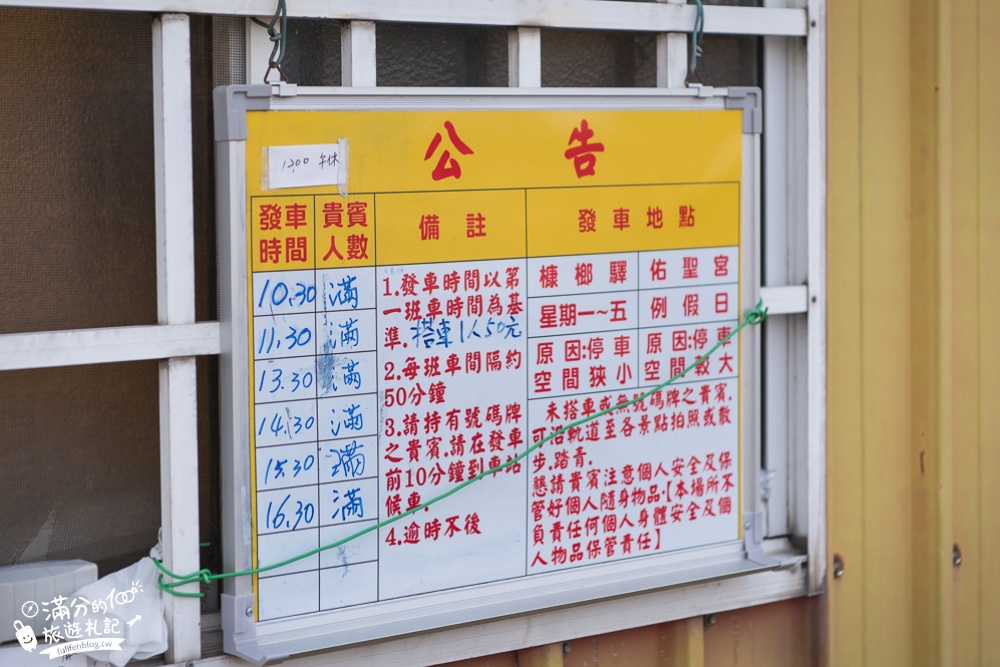 公告
1200 午休
發車時間
貴賓人數
備註
發車地點
10.30 滿
11.30 滿
13.30 滿
14.30 滿
15.30 滿
16.30 滿
1.發車時間以第
一班車時間為基
準.搭車1人50元
2.每班車間隔約
50分鐘
3.請持有號碼牌
之貴賓.請在發車
前10分鐘到車站
候車.
4.逾時不後
槺榔驛
佑聖宮
星期一~五
例假日
原因:停車
空間狹小
原因:停車
空間較大
未搭車或無號碼牌之貴賓.
可沿軌道至各景點拍照或散
步.踏青.
懇請貴賓注意個人安全及保
管好個人隨身物品.【本場所不
負責任何個人身體安全及個
人物品保管責任】
滿分的100
旅遊札記
fullfenblog.tw